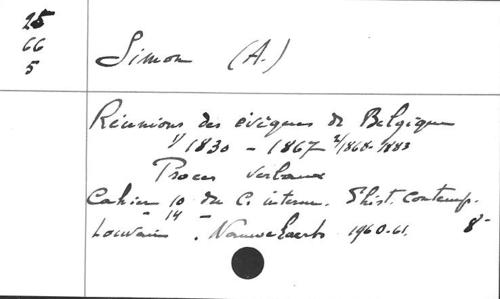 25
66
5
Simon (A.)
Réunions des évêques de Belgique
1/ 1830 - 1867 2/1868-1883
Procès verbaux
Cahier 10 du C. interun. d'hist. contemp.
" 14 "
Louvain. Nauwelaerts 1960-61. 8°